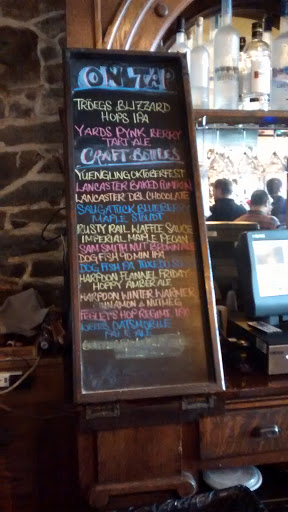 ON TAP
TRÖEGS BLIZZARD
HOPS IPA
YARDS PYNK BERRY
TART ALE
CRAFT BOTTLES
YUENGLING OKTOBERFEST
LANCASTER BAKED PUMPKIN
LANCASTER DBL CHOCOLATE
SAUGATUCK BLUEBERRY
MAPLE STOUT
RUSTY RAIL WAFFLE SAUCE
IMPERIAL MAPLE PECAN
SAM SMITH NUT BROWN ALE
DOGFISH 90 MIN IPA
DOGFISH
HARPOON FLANNEL FRIDAY
HOPPY AMBER ALE
HARPOON WINTER WARMER
CINNAMON & NUTMEG
FEGLEY'S HOP REGIME IPA
PALE ALE